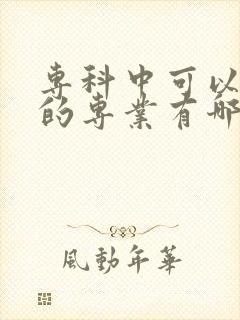 專科中可以
的專業有哪
風動年華